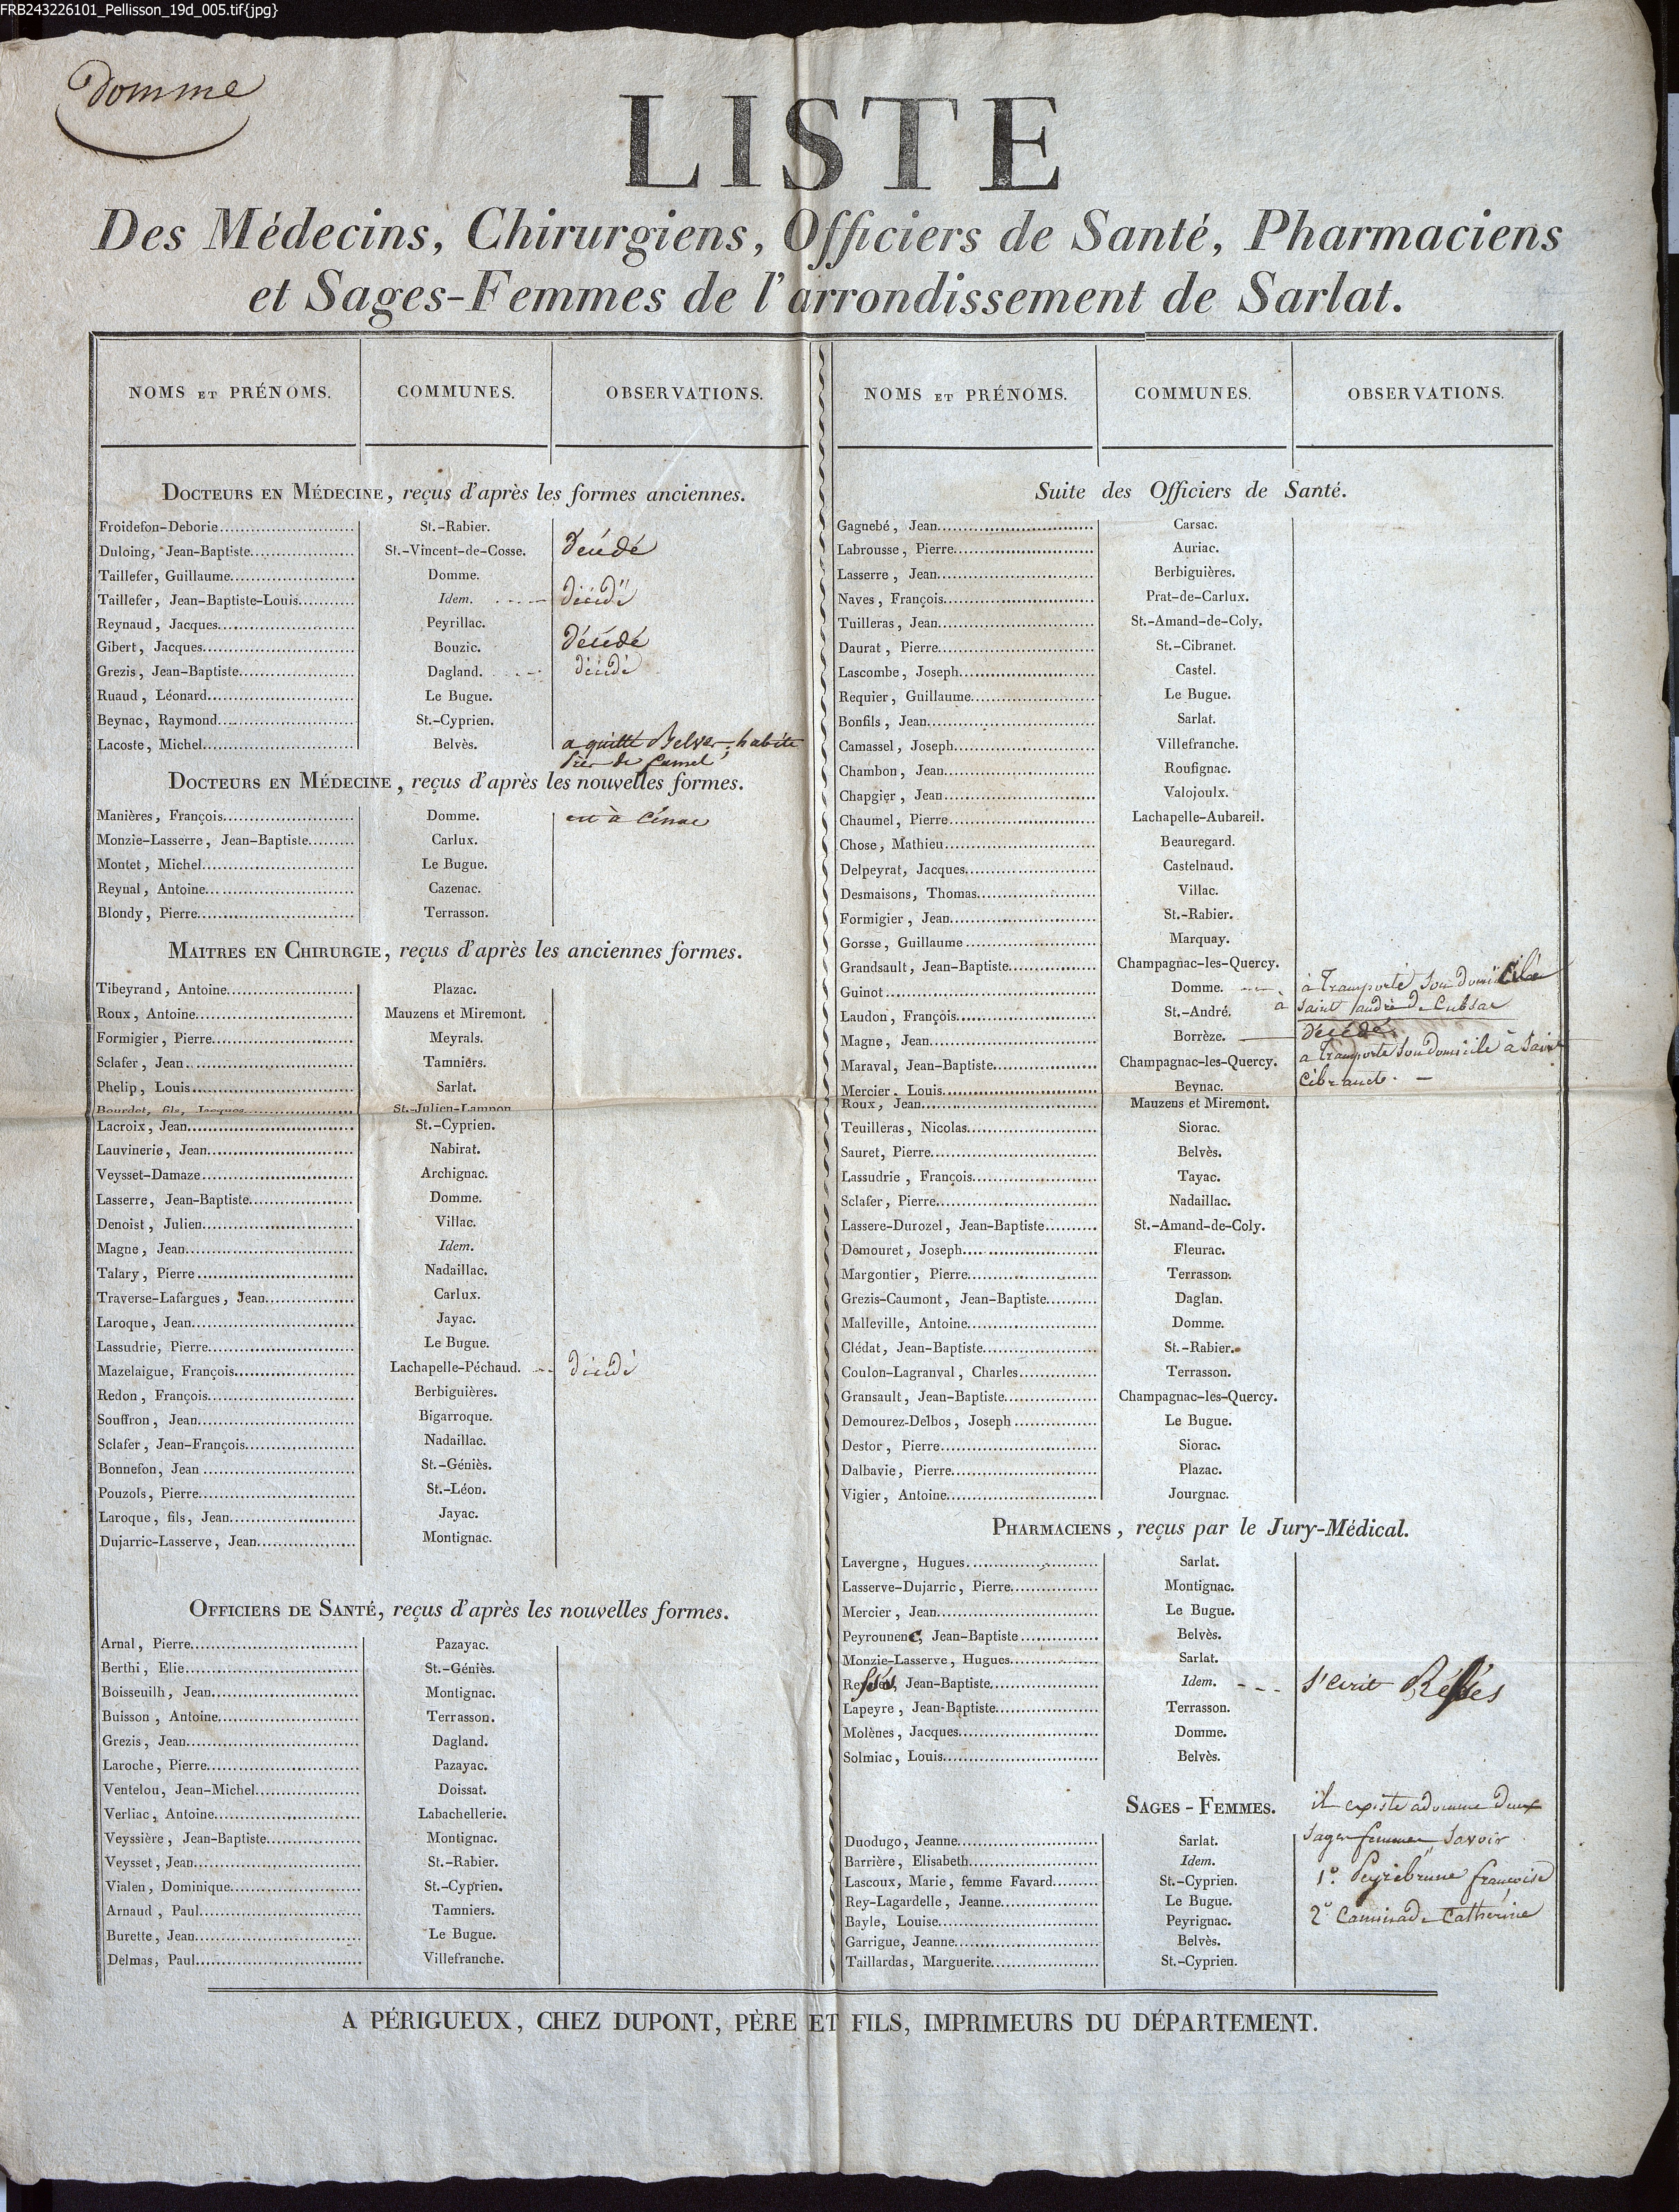 FRB243226101_Pellisson_19d_005.tif{jpg}
Domme
LISTE
Des Médecins, Chirurgiens, Officiers de Santé, Pharmaciens
et Sages-Femmes de l'arrondissement de Sarlat.
NOMS ET PRÉNOMS. COMMUNES. OBSERVATIONS.
DOCTEURS EN MÉDECINE, reçus d'après les formes anciennes.
Froidefon-Deborie St.-Rabier.
Duloing, Jean-Baptiste St.-Vincent-de-Cosse. Décédé
Taillefer, Guillaume Domme.
Taillefer, Jean-Baptiste-Louis Idem. décédé
Reynaud, Jacques Peyrillac.
Gibert, Jacques Bouzic. Décédé
Grezis, Jean-Baptiste Dagland. décédé
Ruaud, Léonard Le Bugue.
Beynac, Raymond St.-Cyprien.
Lacoste, Michel Belvès. a quitté Belves, habite
près de
DOCTEURS EN MÉDECINE, reçus d'après les nouvelles formes.
Manières, François Domme. est à Cénac
Monzie-Lasserre, Jean-Baptiste Carlux.
Montet, Michel Le Bugue.
Reynal, Antoine Cazenac.
Blondy, Pierre Terrasson.
MAITRES EN CHIRURGIE, reçus d'après les anciennes formes.
Tibeyrand, Antoine Plazac.
Roux, Antoine Mauzens et Miremont.
Formigier, Pierre Meyrals.
Sclafer, Jean Tamniers.
Phelip, Louis Sarlat.
Bourdet, fils, Jacques St.-Julien-Lampon
Lacroix, Jean St.-Cyprien.
Lauvinerie, Jean Nabirat.
Veysset-Damaze Archignac.
Lasserre, Jean-Baptiste Domme.
Denoist, Julien Villac.
Magne, Jean Idem.
Talary, Pierre Nadaillac.
Traverse-Lafargues, Jean Carlux.
Laroque, Jean Jayac.
Lassudrie, Pierre Le Bugue.
Mazelaigue, François Lachapelle-Péchaud. décédé
Redon, François Berbiguières.
Souffron, Jean Bigarroque.
Sclafer, Jean-François Nadaillac.
Bonnefon, Jean St.-Géniès.
Pouzols, Pierre St.-Léon.
Laroque, fils, Jean Jayac.
Dujarric-Lasserve, Jean Montignac.
OFFICIERS DE SANTÉ, reçus d'après les nouvelles formes.
Arnal, Pierre Pazayac.
Berthi, Elie St.-Géniès.
Boisseuilh, Jean Montignac.
Buisson, Antoine Terrasson.
Grezis, Jean Dagland.
Laroche, Pierre Pazayac.
Ventelou, Jean-Michel Doissat.
Verliac, Antoine Labachellerie.
Veyssière, Jean-Baptiste Montignac.
Veysset, Jean St.-Rabier.
Vialen, Dominique St.-Cyprien.
Arnaud, Paul Tamniers.
Burette, Jean Le Bugue.
Delmas, Paul Villefranche.
NOMS ET PRÉNOMS. COMMUNES. OBSERVATIONS.
Suite des Officiers de Santé.
Gagnebé, Jean Carsac.
Labrousse, Pierre Auriac.
Lasserre, Jean Berbiguières.
Naves, François Prat-de-Carlux.
Tuilleras, Jean St.-Amand-de-Coly.
Daurat, Pierre St.-Cibranet.
Lascombe, Joseph Castel.
Requier, Guillaume Le Bugue.
Bonfils, Jean Sarlat.
Camassel, Joseph Villefranche.
Chambon, Jean Roufignac.
Chapgier, Jean Valojoulx.
Chaumel, Pierre Lachapelle-Aubareil.
Chose, Mathieu Beauregard.
Delpeyrat, Jacques Castelnaud.
Desmaisons, Thomas Villac.
Formigier, Jean St.-Rabier.
Gorsse, Guillaume Marquay.
Grandsault, Jean-Baptiste Champagnac-les-Quercy.
Guinot Domme. à transporté son domicile
Laudon, François St.-André. à Saint andré de Cubsac
Magne, Jean Borrèze. Décédé
Maraval, Jean-Baptiste Champagnac-les-Quercy. a transporté son domicile à Saint
Mercier, Louis Beynac. Cibranet.
Roux, Jean Mauzens et Miremont.
Teuilleras, Nicolas Siorac.
Sauret, Pierre Belvès.
Lassudrie, François Tayac.
Sclafer, Pierre Nadaillac.
Lassere-Durozel, Jean-Baptiste St.-Amand-de-Coly.
Demouret, Joseph Fleurac.
Margontier, Pierre Terrasson.
Grezis-Caumont, Jean-Baptiste Daglan.
Malleville, Antoine Domme.
Clédat, Jean-Baptiste St.-Rabier.
Coulon-Lagranval, Charles Terrasson.
Gransault, Jean-Baptiste Champagnac-les-Quercy.
Demourez-Delbos, Joseph Le Bugue.
Destor, Pierre Siorac.
Dalbavie, Pierre Plazac.
Vigier, Antoine Jourgnac.
PHARMACIENS, reçus par le Jury-Médical.
Lavergne, Hugues Sarlat.
Lasserve-Dujarric, Pierre Montignac.
Mercier, Jean Le Bugue.
Peyrounenc, Jean-Baptiste Belvès.
Monzie-Lasserve, Hugues Sarlat.
Ressès, Jean-Baptiste Idem. s'ecrit Réssés
Lapeyre, Jean-Baptiste Terrasson.
Molènes, Jacques Domme.
Solmiac, Louis Belvès.
SAGES-FEMMES. il existe a domme deux
Duodugo, Jeanne Sarlat. sages femmes savoir
Barrière, Elisabeth Idem.
Lascoux, Marie, femme Favard St.-Cyprien. 1º. Peyrebrune francoise
Rey-Lagardelle, Jeanne Le Bugue.
Bayle, Louise Peyrignac. 2º Caminade Catherine
Garrigue, Jeanne Belvès.
Taillardas, Marguerite St.-Cyprien.
A PÉRIGUEUX, CHEZ DUPONT, PÈRE ET FILS, IMPRIMEURS DU DÉPARTEMENT.